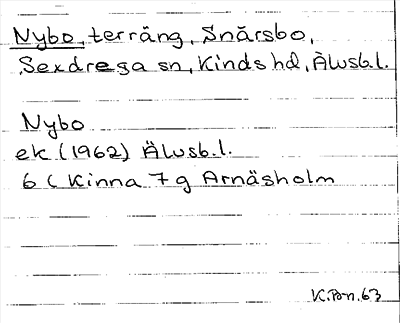 Nybo, terräng, Snårsbo,
Sexdrega sn, Kinds hd, Älvsb.l.
Nybo
ek (1962) Älvsb.l.
6 C Kinna 7 g Arnäsholm
K.Bn.63